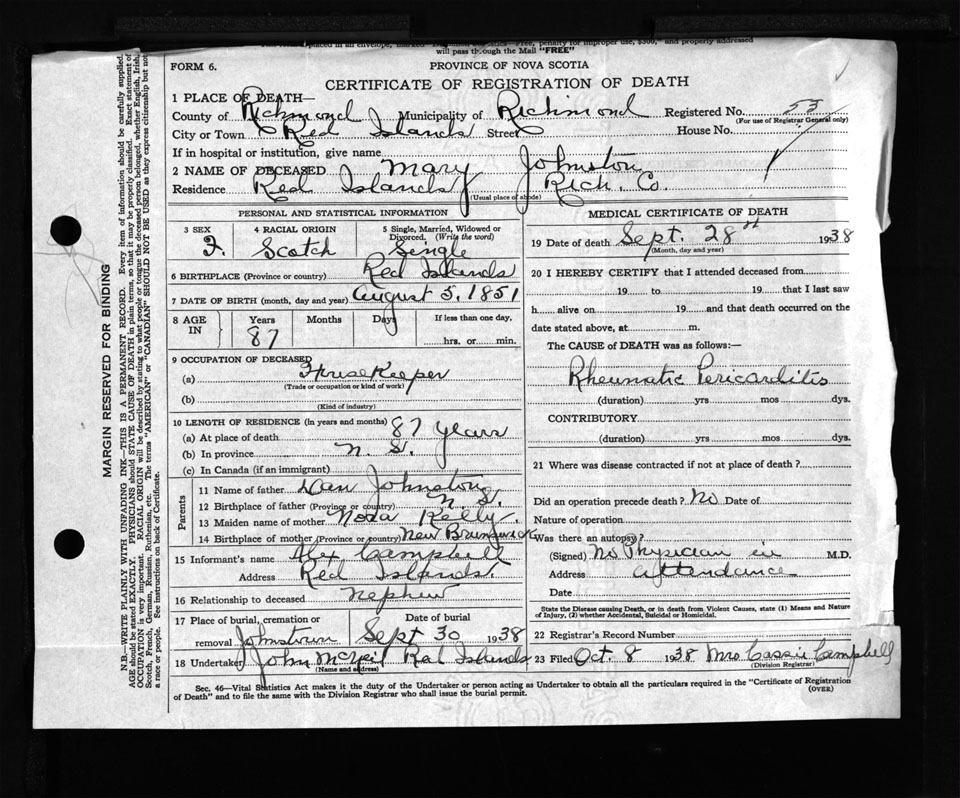 will pass through the Mail "FREE"
FORM 6.
PROVINCE OF NOVA SCOTIA
CERTIFICATE OF REGISTRATION OF DEATH
1 PLACE OF DEATH—
County of Richmond Municipality of Richmond Registered No. 53
(For use of Registrar General only)
City or Town Red Islands Street House No.
If in hospital or institution, give name
2 NAME OF DECEASED Mary Johnston
Residence Red Islands Rich. Co.
(Usual place of abode)
PERSONAL AND STATISTICAL INFORMATION
3 SEX 4 RACIAL ORIGIN 5 Single, Married, Widowed or Divorced. (Write the word)
F. Scotch Single
6 BIRTHPLACE (Province or country) Red Islands
7 DATE OF BIRTH (month, day and year) August 5, 1851
8 AGE IN Years Months Days If less than one day,
87 hrs. or min.
9 OCCUPATION OF DECEASED
(a) House Keeper
(Trade or occupation or kind of work)
(b)
(Kind of industry)
10 LENGTH OF RESIDENCE (in years and months)
(a) At place of death 87 years
(b) In province N. S.
(c) In Canada (if an immigrant)
Parents
11 Name of father Dan Johnston
12 Birthplace of father (Province or country) N. S.
13 Maiden name of mother Nora Kelly.
14 Birthplace of mother (Province or country) New Brunswick
15 Informant's name Alex Campbell
Address Red Islands.
16 Relationship to deceased nephew
17 Place of burial, cremation or removal Date of burial
Johnstown Sept 30 1938
18 Undertaker John McNeil Red Islands
(Name and address)
MEDICAL CERTIFICATE OF DEATH
19 Date of death Sept. 28th 1938
(Month, day and year)
20 I HEREBY CERTIFY that I attended deceased from
19 to 19 that I last saw
h alive on 19 and that death occurred on the
date stated above, at m.
The CAUSE of DEATH was as follows:—
Rheumatic Pericarditis
(duration) yrs mos dys.
CONTRIBUTORY
(duration) yrs mos dys.
21 Where was disease contracted if not at place of death?
Did an operation precede death? No Date of
Nature of operation
Was there an autopsy?
(Signed) No Physician in M.D.
Address attendance
Date
State the Disease causing Death, or in death from Violent Causes, state (1) Means and Nature
of Injury, (2) whether Accidental, Suicidal or Homicidal.
22 Registrar's Record Number
23 Filed Oct. 8 1938 Mrs Cassie Campbell
(Division Registrar)
Sec. 46—Vital Statistics Act makes it the duty of the Undertaker or person acting as Undertaker to obtain all the particulars required in the "Certificate of Registration
of Death" and to file the same with the Division Registrar who shall issue the burial permit.
(OVER)
MARGIN RESERVED FOR BINDING
N.B.—WRITE PLAINLY WITH UNFADING INK—THIS IS A PERMANENT RECORD. Every item of information should be carefully supplied.
AGE should be stated EXACTLY. PHYSICIANS should STATE CAUSE OF DEATH in plain terms, so that it may be properly classified. Exact statement of
OCCUPATION is very important. RACIAL ORIGIN will be described by stating to what people or tongue the deceased person belonged, whether English, Irish,
Scotch, French, German, Russian, Ruthenian, etc. The terms "AMERICAN" or "CANADIAN" SHOULD NOT BE USED as they express citizenship but not
a race or people. See instructions on back of Certificate.